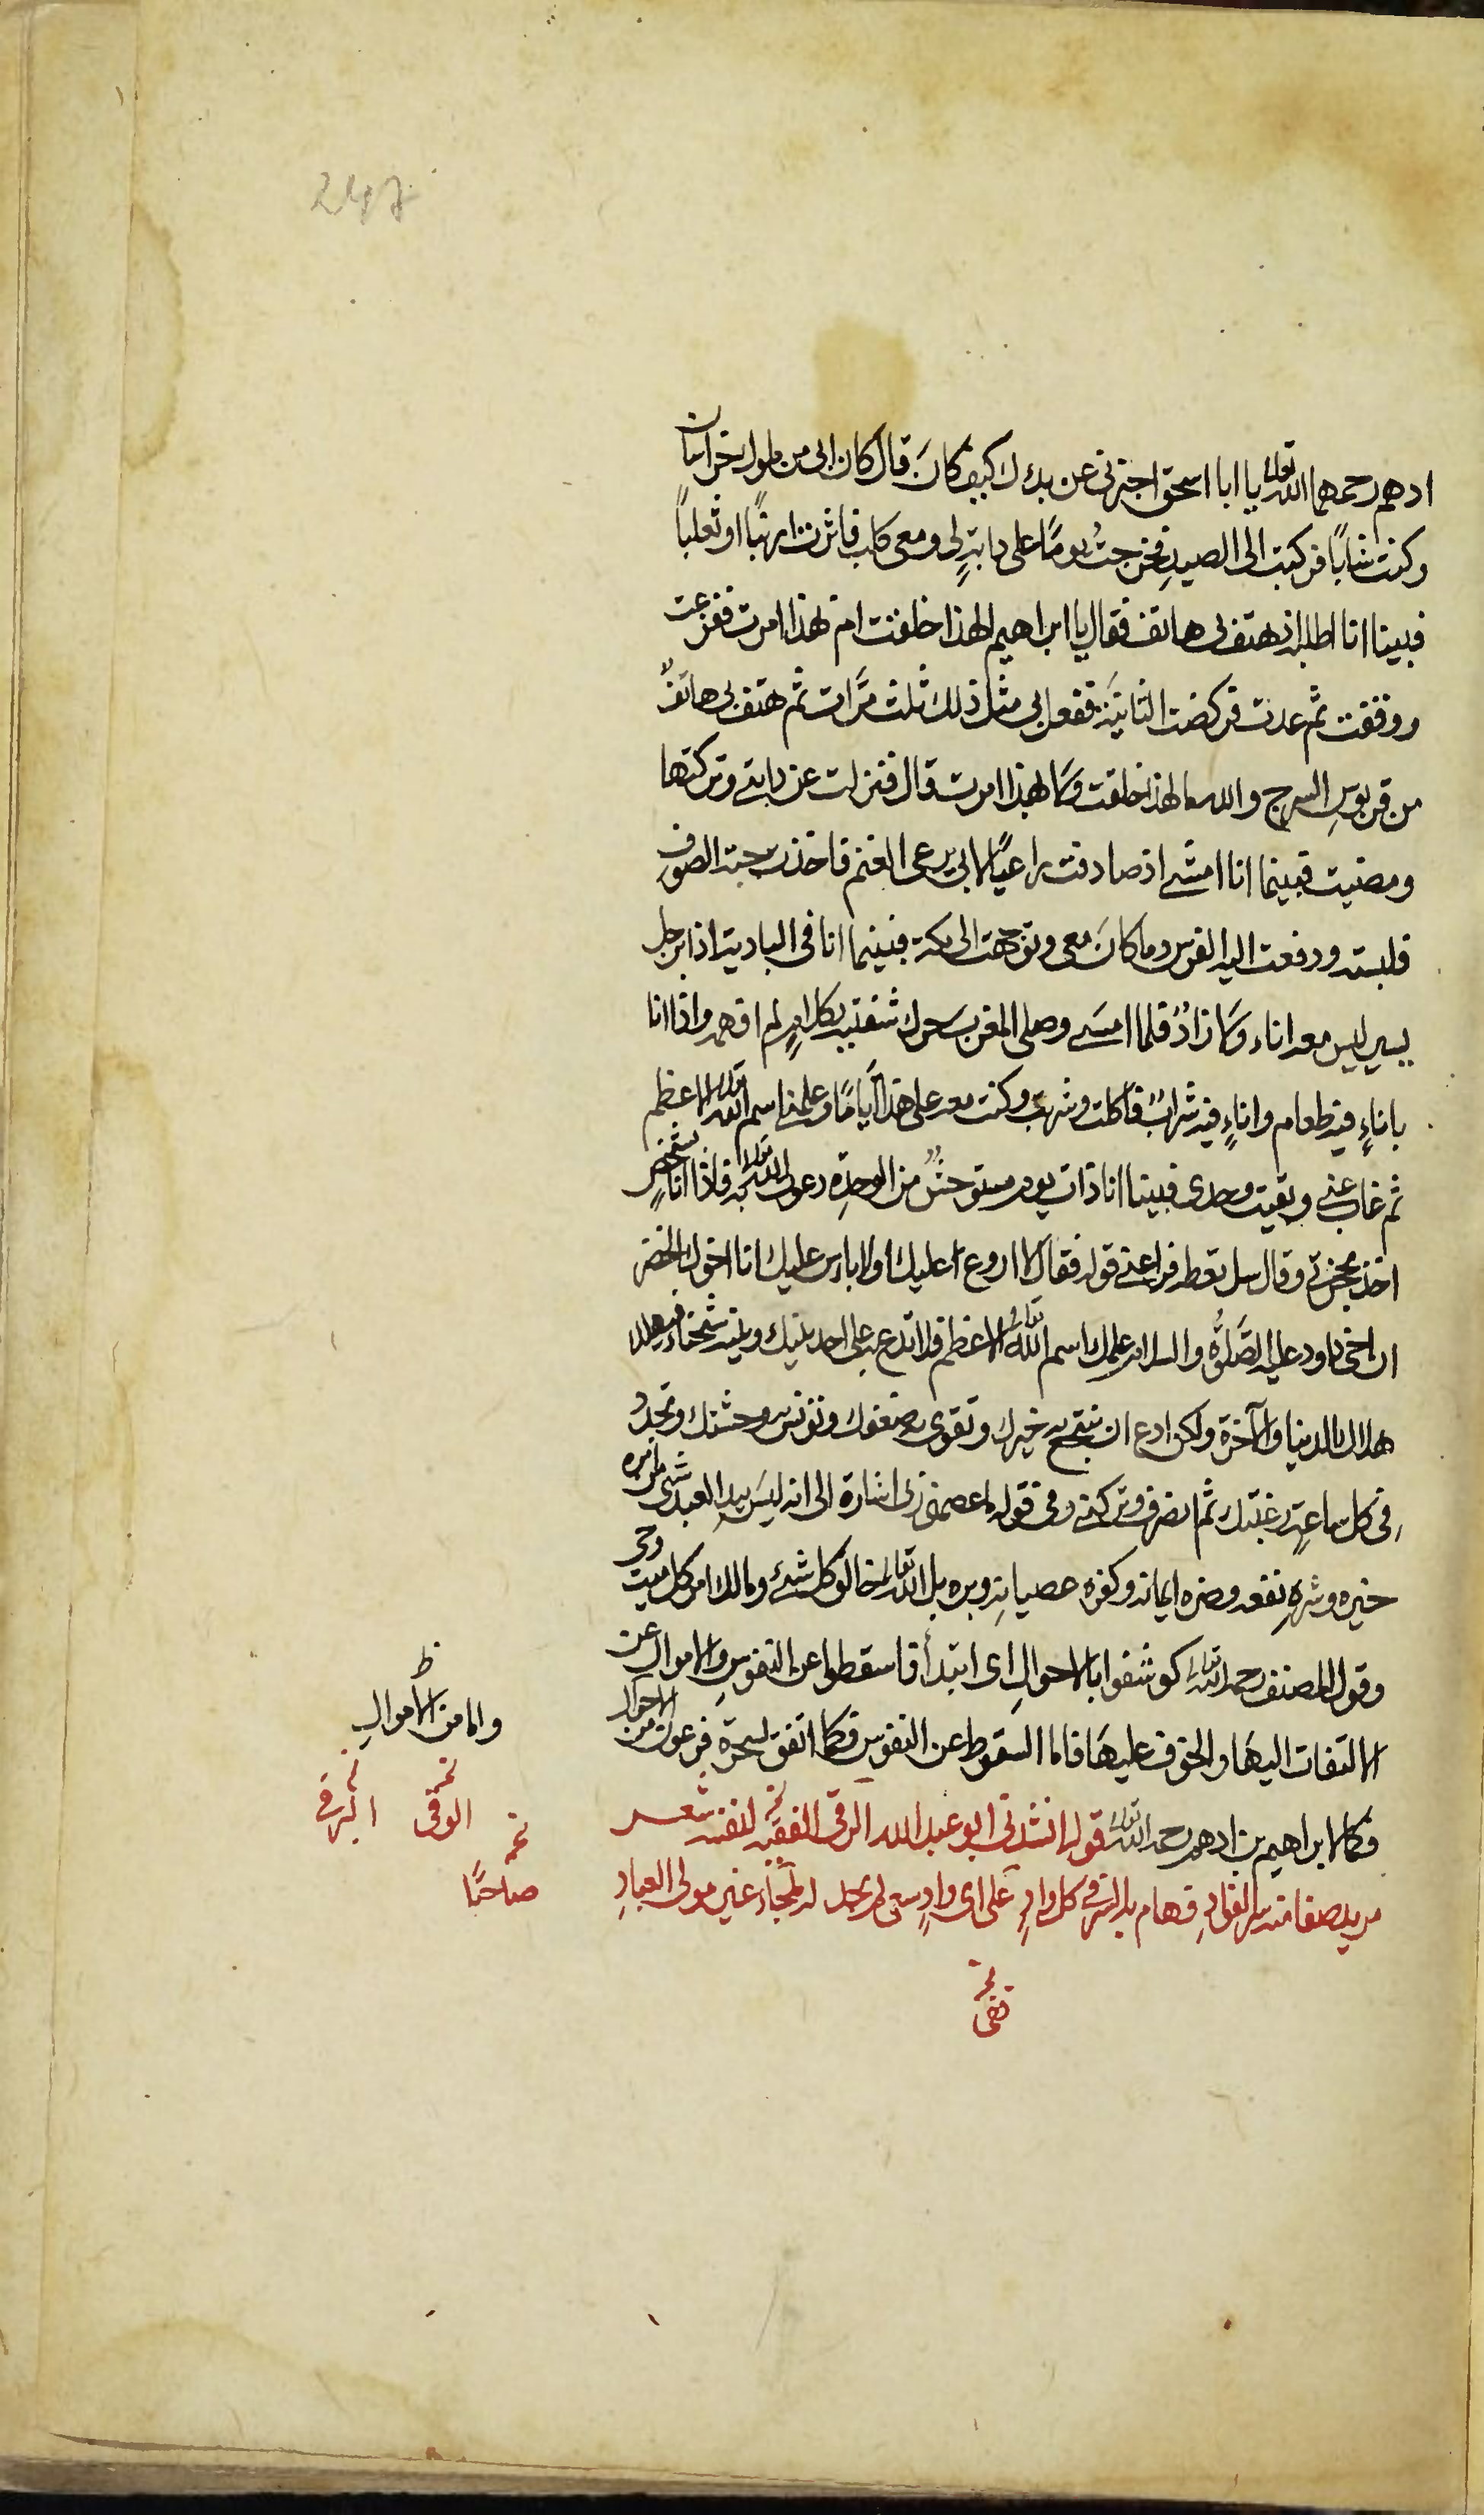 247
ادهم رحمهما الله تعالى يا ابا اسحق اخبرنى عن بدءك كيف كانَ قال كان ابى من ملوك خراسان
وكنت شابًا فركبت الى الصيدِ فخرجتُ يومًا على دابةٍ لى ومعى كلب فاثرت ارنبًا او ثعلبًا
فبينا انا اطلبه اذ هتف بى هاتف فقال يا ابراهيم الهذا خلقت ام بهذا امرت ففزعت
ووقفت ثم عدت فركضت الثانيَة ففعل بى مثل ذلك ثلث مرَّات ثم هتف بى هاتفٌ
من قربوسِ السرج والله ما لهذا خلقت وَلا بهذا امرت قال فنزلت عن دابتى وتركتها
ومضيت فبينما انا امشى اذ صادفت راعيًا لابى يرعى الغنم فاخذت جبته الصوف
فلبسته ودفعت اليه الفرس وما كانَ معى وتوجهت الى مكة فبينما انا فى البادية اذا برجل
يسير ليس معه اناء وَلا زادٌ فلما امسَى وصلى المغرب حرك شفتيه بكلامٍ لم افهمه واذا انا
باناءٍ فيه طعام واناءٍ فيه شرابٌ فاكلت وشربت وكنت معه على هذا ايامًا وعلمنى اسم الله تعالى الاعظم
ثم غاب عنى وبقيت وحدى فبينا انا ذات يوم مستوحشٌ من الوحدةِ دعوت الله تعالى به فاذا انا بشخصٍ
اخذ بحجزتى وقال سل تعطه فراعنى قوله فقال لا روع عليك ولا باس عليك انا اخوك الخضر
ان اخى داود عليه الصَّلوٰةُ والسلام علمك اسم الله تعالى الاعظم فلا تدع به على احد بينك وبينه شحناء فتهلكه
هلاك الدنيا والآخرة ولكن ادع ان يشجع به جبنك وتقوى به ضعفك وتونس به وحشتك وتجدّد
فى كل ساعةٍ رغبتك ثم انصرف وتركنى وفى قوله اعصمنى اشارة الى انه ليسَ بيد العبد شئ من امره
خيره وشره نفعه وضره ايمانه وكفره عصيانه وبره بل الله تعالى خالق كل شئ ومالك امر كل ميت وحى
وقول المصنف رحمه الله تعالى كوشفوا بالاحوالِ اى ابتدأ فاسقطوا عن النفوسِ والاموال عن
الالتفات اليهَا والخوف عليهَا فاما السقوط عن النفوس فكما اتفق لسحرة فرعون من الاحوال
فكما لابراهيم بن ادهم رحمه الله تعالى قوله انشدنى ابو عبد الله الرقى الفقيه لنفسه شعـــر
مريد صفا منه سر الفؤادِ فهام به السر فى كل وادٍ على اى وادٍ سعى لم يجد له ملجأ غير مولى العبادِ
ظ
واما من الاموالِ
نخـ الوقى
نخـ صاحبًا
نخـ